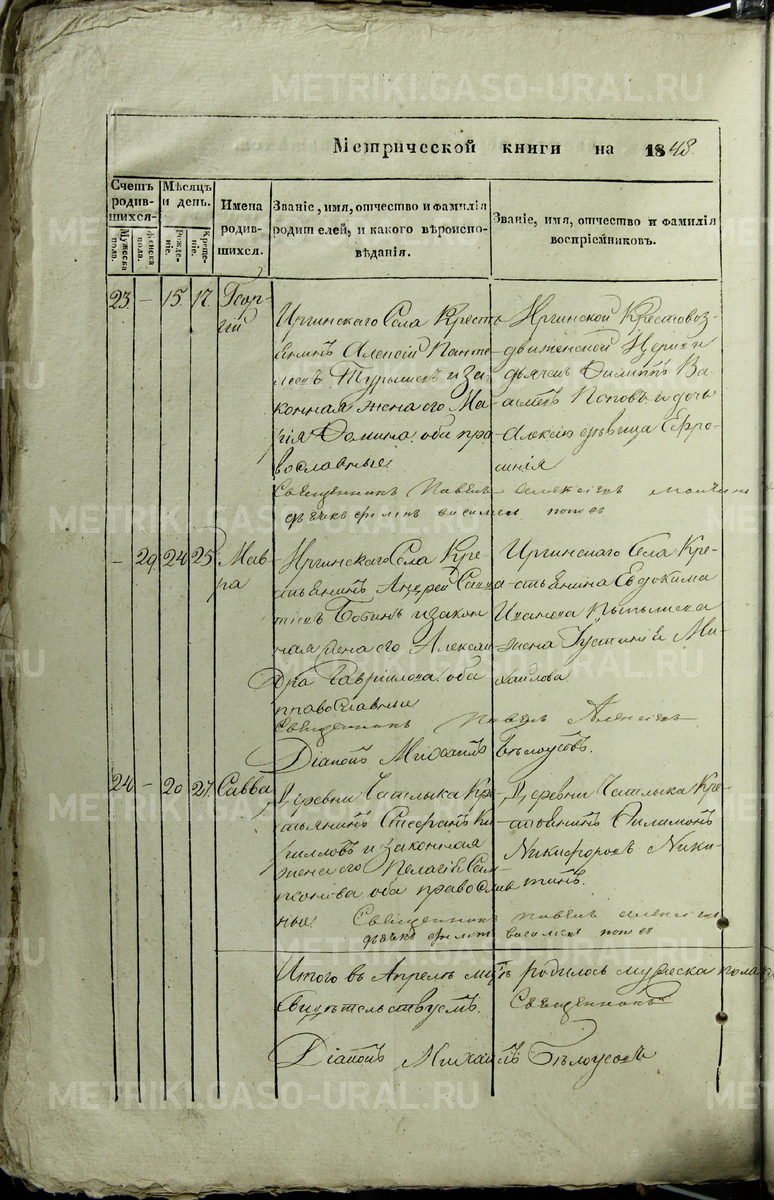 METRIKI.GASO-URAL.RU
Метрической книги на 1848.
Счетъ родив-шихся.
Мужеска пола.
Женска пола.
Мѣсяцъ и день.
Рожде-ніе.
Креще-ніе.
Имена родив-шихся.
Званіе, имя, отчество и фамилія
родителей, и какого вѣроиспо-
вѣданія.
Званіе, имя, отчество и фамилія
воспріемниковъ.
23 – 15. 17. Геор-
гій
Иргинскаго Села Кресть
янинъ Алексій Панте
леевъ и за
конная жена его Ма
рія Фомина оба пра
вославные
Иргинской Крестовоз-
движенской Церкви
дьячекъ Филиппъ Ва
Поповъ и дочь
девица Ефро
синія
Священникъ Павелъ Алексіевъ
дьячекъ Филипъ Поповъ
– 29 24 25. Мав
ра
Иргинскаго Села Кре-
стьянинъ Андрей Сав
Бобинъ и закон
ная жена его Алексан
дра Гавріилова оба
православные
Иргинскаго Села Кре-
стьянина Евдокима
Иванова
жена Густинія Ми-
хайлова
Священникъ Павелъ Алексіевъ
Діаконъ Михаилъ Бѣлоусовъ.
24 – 20 27. Савва
Деревни Чатлыка Кре-
стьянинъ Стефанъ Ки
рилловъ и законная
жена его Пелагія Сам
сонова оба православ
ные
Деревни Чатлыка Кре-
стьянинъ Филимонъ
Никифоровъ Ники-
тинъ.
Священникъ Павелъ Алексіевъ
дьячекъ Филипъ Поповъ
Итого въ Апрелѣ родилось мужеска пола
Свидѣтельствуемъ. Священникъ
Діаконъ Михаилъ Бѣлоусовъ